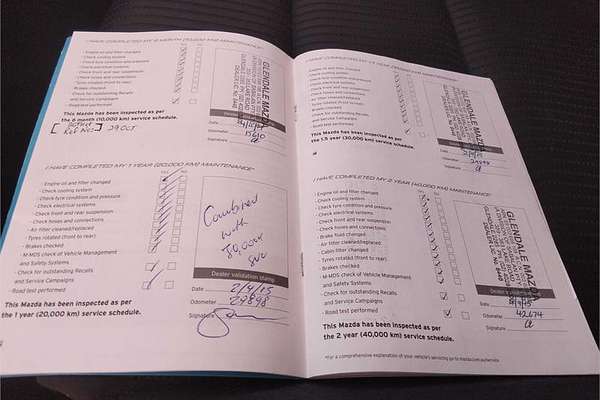 I HAVE COMPLETED MY 6 MONTH (10,000 KM) MAINTENANCE
- Engine oil and filter changed
- Check cooling system
- Check tyre condition and pressure
- Check electrical systems
- Check front and rear suspension
- Check hoses and connections
- Tyres rotated (front to rear)
- Brakes checked
- Check for outstanding Recalls
and Service Campaigns
- Road test performed
This Mazda has been inspected as per
the 6 month (10,000 km) service schedule.
29 OCT
GLENDALE MAZDA
Odometer
Signature
I HAVE COMPLETED MY 1 YEAR (20,000 KM) MAINTENANCE
- Engine oil and filter changed
- Check cooling system
- Check tyre condition and pressure
- Check electrical systems
- Check front and rear suspension
- Check hoses and connections
- Air filter cleaned/replaced
- Tyres rotated (front to rear)
- Brakes checked
- M-MDS check of Vehicle Management
and Safety Systems
- Check for outstanding Recalls
and Service Campaigns
- Road test performed
This Mazda has been inspected as per
the 1 year (20,000 km) service schedule.
Combined
with
30,000
SVC
Dealer validation stamp
Date 2/4/15
Odometer 29898
Signature
I HAVE COMPLETED MY 1.5 YEAR (30,000 KM) MAINTENANCE
- Engine oil and filter changed
- Check cooling system
- Check tyre condition and pressure
- Check electrical systems
- Check front and rear suspension
- Check hoses and connections
- Air filter cleaned/replaced
- Tyres rotated (front to rear)
- Brakes checked
- Check for outstanding Recalls
and Service Campaigns
- Road test performed
This Mazda has been inspected as per
the 1.5 year (30,000 km) service schedule.
GLENDALE MAZDA
Date 2/4/15
Odometer 29898
Signature
I HAVE COMPLETED MY 2 YEAR (40,000 KM) MAINTENANCE
- Engine oil and filter changed
- Check cooling system
- Check tyre condition and pressure
- Check electrical systems
- Check front and rear suspension
- Check hoses and connections
- Brake fluid changed
- Air filter cleaned/replaced
- Cabin filter changed
- Tyres rotated (front to rear)
- Brakes checked
- M-MDS check of Vehicle Management
and Safety Systems
- Check for outstanding Recalls
and Service Campaigns
- Road test performed
This Mazda has been inspected as per
the 2 year (40,000 km) service schedule.
GLENDALE MAZDA
Date
Odometer 42674
Signature
*For a comprehensive explanation of your vehicle's servicing go to mazda.com.au/service